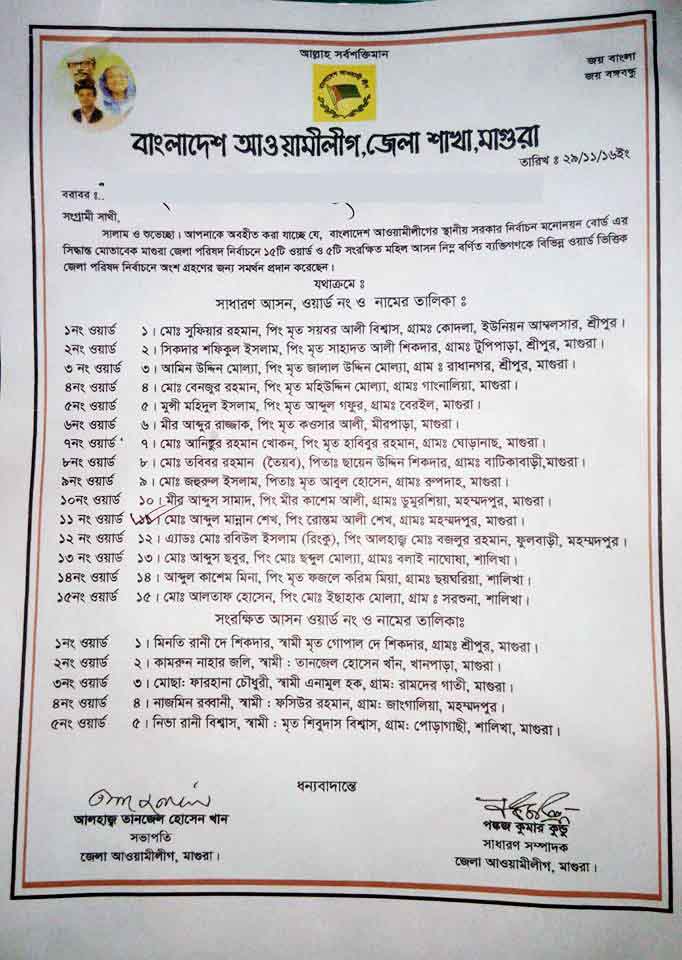 আল্লাহ সর্বশক্তিমান
জয় বাংলা
জয় বঙ্গবন্ধু
বাংলাদেশ আওয়ামীলীগ,জেলা শাখা,মাগুরা
তারিখ ঃ ২৯/১১/১৬ইং
বরাবর ঃ
সংগ্রামী সাথী,
সালাম ও শুভেচ্ছা। আপনাকে অবহীত করা যাচ্ছে যে, বাংলাদেশ আওয়ামীলীগের স্থানীয় সরকার নির্বাচন মনোনয়ন বোর্ড এর
সিদ্ধান্ত মোতাবেক মাগুরা জেলা পরিষদ নির্বাচনে ১৫টি ওয়ার্ড ও ৫টি সংরক্ষিত মহিল আসন নিম্ন বর্ণিত ব্যক্তিগণকে বিভিন্ন ওয়ার্ড ভিত্তিক
জেলা পরিষদ নির্বাচনে অংশ গ্রহণের জন্য সমর্থন প্রদান করেছেন।
যথাক্রমে ঃ
সাধারণ আসন, ওয়ার্ড নং ও নামের তালিকা ঃ
১নং ওয়ার্ড ১। মোঃ সুফিয়ার রহমান, পিং মৃত সয়বর আলী বিশ্বাস, গ্রামঃ কোদলা, ইউনিয়ন আম্বলসার, শ্রীপুর।
২নং ওয়ার্ড ২। সিকদার শফিকুল ইসলাম, পিং মৃত সাহাদত আলী শিকদার, গ্রামঃ টুপিপাড়া, শ্রীপুর, মাগুরা।
৩ নং ওয়ার্ড ৩। আমিন উদ্দিন মোল্যা, পিং মৃত জালাল উদ্দিন মোল্যা, গ্রাম ঃ রাধানগর, শ্রীপুর, মাগুরা।
৪নং ওয়ার্ড ৪। মোঃ বেনজুর রহমান, পিং মৃত মহিউদ্দিন মোল্যা, গ্রামঃ গাংনালিয়া, মাগুরা।
৫নং ওয়ার্ড ৫। মুন্সী মহিদুল ইসলাম, পিং মৃত আব্দুল গফুর, গ্রামঃ বেরইল, মাগুরা।
৬নং ওয়ার্ড ৬। মীর আব্দুর রাজ্জাক, পিং মৃত কওসার আলী, মীরপাড়া, মাগুরা।
৭নং ওয়ার্ড ৭। মোঃ আনিছুর রহমান খোকন, পিং মৃত হাবিবুর রহমান, গ্রামঃ ঘোড়ানাছ, মাগুরা।
৮নং ওয়ার্ড ৮। মোঃ তবিবর রহমান (তৈয়ব), পিতাঃ ছায়েন উদ্দিন শিকদার, গ্রামঃ বাটিকাবাড়ী,মাগুরা।
৯নং ওয়ার্ড ৯। মোঃ জহুরুল ইসলাম, পিতাঃ মৃত আবুল হোসেন, গ্রামঃ রুপদাহ, মাগুরা।
১০নং ওয়ার্ড ১০। মীর আব্দুস সামাদ, পিং মীর কাশেম আলী, গ্রামঃ ডুমুরশিয়া, মহম্মদপুর, মাগুরা।
১১ নং ওয়ার্ড ১১। মোঃ আব্দুল মান্নান শেখ, পিং রোস্তম আলী শেখ, গ্রামঃ মহম্মদপুর, মাগুরা।
১২ নং ওয়ার্ড ১২। এ্যাডঃ মোঃ রবিউল ইসলাম (রিংকু), পিং আলহাজ্ব মোঃ বজলুর রহমান, ফুলবাড়ী, মহম্মদপুর।
১৩ নং ওয়ার্ড ১৩। মোঃ আব্দুস ছবুর, পিং মোঃ ছব্দুল মোল্যা, গ্রামঃ বলাই নাঘোষা, শালিখা।
১৪নং ওয়ার্ড ১৪। আব্দুল কাশেম মিনা, পিং মৃত ফজলে করিম মিয়া, গ্রামঃ ছয়ঘরিয়া, শালিখা।
১৫নং ওয়ার্ড ১৫। মোঃ আলতাফ হোসেন, পিং মোঃ ইছাহাক মোল্যা, গ্রাম ঃ সরশুনা, শালিখা।
সংরক্ষিত আসন ওয়ার্ড নং ও নামের তালিকাঃ
১নং ওয়ার্ড ১। মিনতি রানী দে শিকদার, স্বামী মৃত গোপাল দে শিকদার, গ্রামঃ শ্রীপুর, মাগুরা।
২নং ওয়ার্ড ২। কামরুন নাহার জলি, স্বামী : তানজেল হোসেন খাঁন, খানপাড়া, মাগুরা।
৩নং ওয়ার্ড ৩। মোছা: ফারহানা চৌধুরী, স্বামী এনামুল হক, গ্রাম: রামদের গাতী, মাগুরা।
৪নং ওয়ার্ড ৪। নাজমিন রব্বানী, স্বামী : ফসিউর রহমান, গ্রাম: জাংগালিয়া, মহম্মদপুর।
৫নং ওয়ার্ড ৫। নিভা রানী বিশ্বাস, স্বামী : মৃত শিবুদাস বিশ্বাস, গ্রাম: পোড়াগাছী, শালিখা, মাগুরা।
ধন্যবাদান্তে
আলহাজ্ব তানজেল হোসেন খান
সভাপতি
জেলা আওয়ামীলীগ, মাগুরা।
পঙ্কজ কুমার কুন্ডু
সাধারণ সম্পাদক
জেলা আওয়ামীলীগ, মাগুরা।